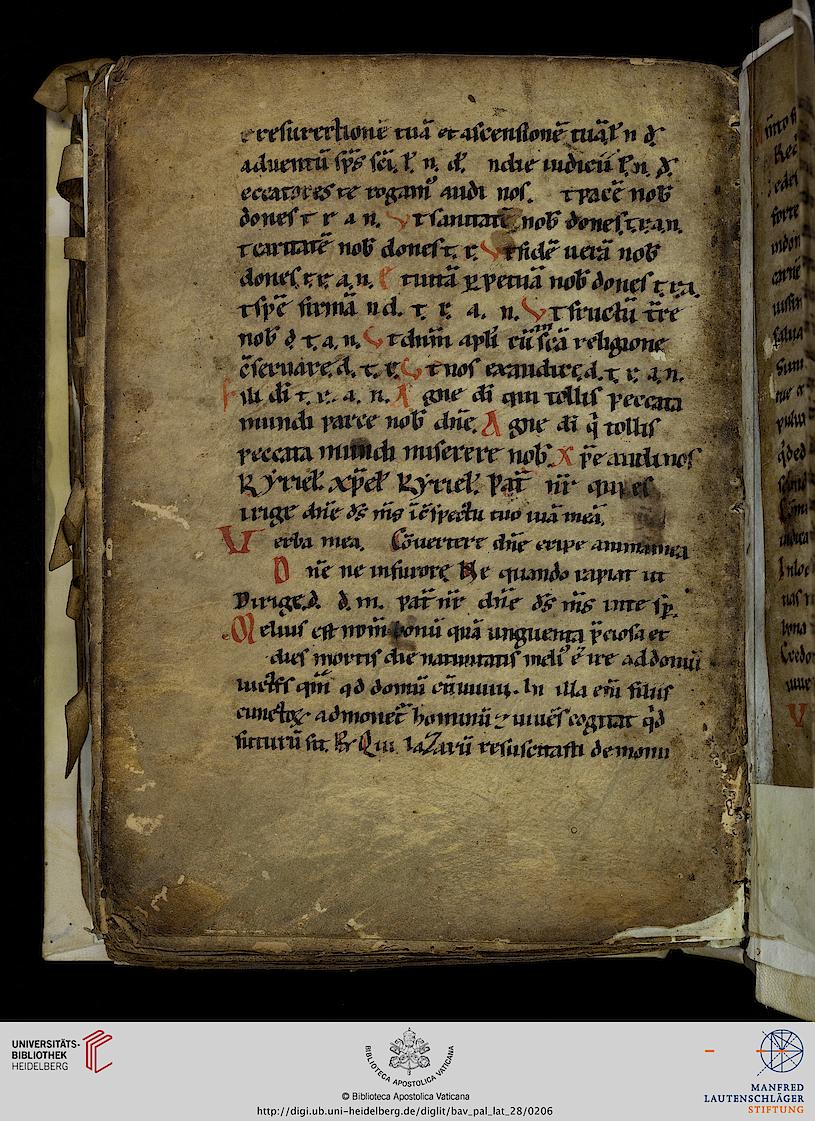 e resurrectionē tuā et ascensionē tuā l̄ n đ
aduentū sp̄s sc̄i. l̄. n. đ. n die iudicii l̄. n. đ.
eccatores te rogam᷒ audi nos. t pacē nob̄
dones t r a n. Vt sanitatē nob̄ dones. t. r. a n.
t caritatē nob̄ dones t. r. Vt fidē uerā nob̄
dones. t. r. a. n. E tuitā ꝑpetuā nob̄ dones t r a.
t spē firmā n d. t. r. a. n. Vt fructū t̄re
nob̄ d t. a. n. Vt dnm̄ apl̄i cū sc̄a religione
c̄seruare. d. t. r. Vt nos exaudire. d. t. r. a. n.
F ili di t. r. a. n. A gne di qui tollis peccata
mundi parce nob̄ dn̄e. A gne di q̄ tollis
peccata mundi miserere nob̄. X p̄e audi nos
Kyriel̄. xp̄el̄ Kyriel̄. Pat̄ nr̄ qui es
irige dn̄e ds̄ m̄s ī c̄spectu tuo uiā meā.
V erba mea. Cōuertere dn̄e eripe animā mea
D n̄e ne in furore Ne quando rapiat ut
Dirige. d. d. m. pat̄ nr̄ dn̄e ds̄ m̄s in te sp̄.
M elius est nom̄ bonū quā unguenta p̄ciosa et
dies mortis die natiuitatis meli᷒ ē ire ad domū
luct᷒s qm̄ qd domū cūuiuii. In illa enī finis
cunctoꝝ admonet᷒ hominū ⁊ uiuēs cogitat qd̄
futurū sit. R̄ Qui laZarū resuscitasti de monu
UNIVERSITÄTS-
BIBLIOTHEK
HEIDELBERG
BIBLIOTECA APOSTOLICA VATICANA
© Biblioteca Apostolica Vaticana
http://digi.ub.uni-heidelberg.de/diglit/bav_pal_lat_28/0206
MANFRED
LAUTENSCHLÄGER
STIFTUNG